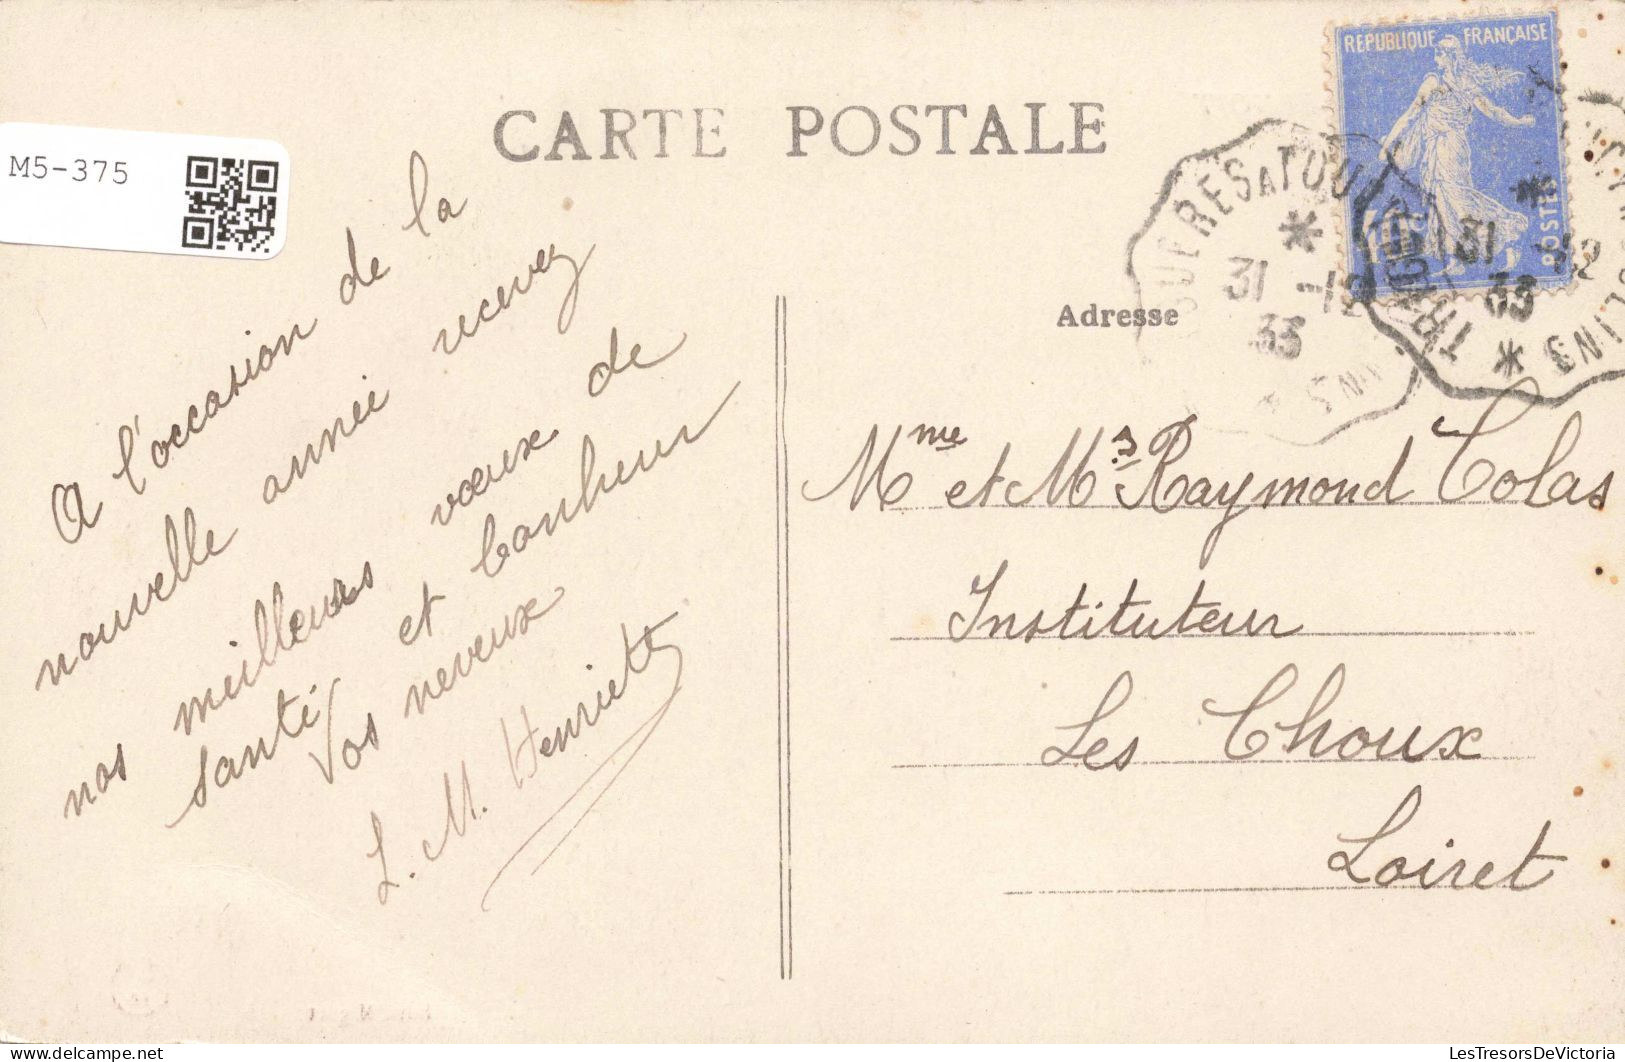 M5-375
CARTE POSTALE
REPUBLIQUE FRANÇAISE
POSTES
31 -12
33
31 -12
33
A l'occasion de la
nouvelle année recevez
nos meilleurs vœux de
santé et bonheur
Vos neveux
L. M. Henriette
Adresse
Mme et Mr Raymond Colas
Instituteur
Les Choux
Loiret
LesTresorsDeVictoria